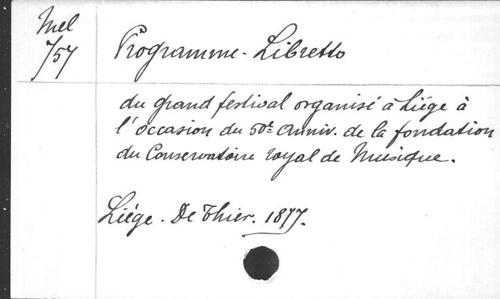 Mel
757
Programme-Libretto
du grand festival organisé à Liége à
l'occasion du 50e Anniv. de la fondation
du Conservatoire royal de Musique.
Liége. De Thier. 1877.